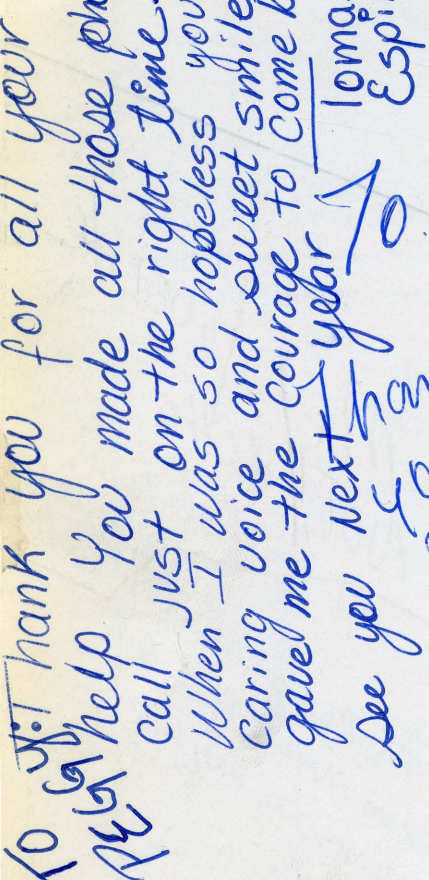 To
Thank you for all your
help You made all those
call just on the right time.
When I was so hopeless you
caring voice and sweet smile
gave me the courage to come
see you Next year